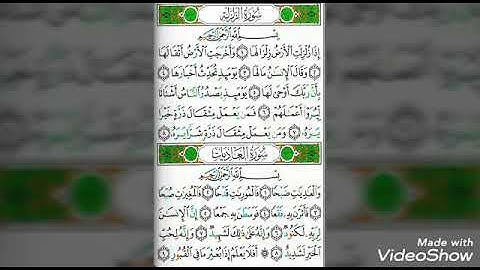 سُورَةُ الزَّلْزَلَةِ
بِسْمِ اللَّهِ الرَّحْمَٰنِ الرَّحِيمِ
إِذَا زُلْزِلَتِ الْأَرْضُ زِلْزَالَهَا ١ وَأَخْرَجَتِ الْأَرْضُ أَثْقَالَهَا
٢ وَقَالَ الْإِنسَٰنُ مَا لَهَا ٣ يَوْمَئِذٍ تُحَدِّثُ أَخْبَارَهَا ٤
بِأَنَّ رَبَّكَ أَوْحَىٰ لَهَا ٥ يَوْمَئِذٍ يَصْدُرُ النَّاسُ أَشْتَاتًا
لِّيُرَوْا أَعْمَٰلَهُمْ ٦ فَمَن يَعْمَلْ مِثْقَالَ ذَرَّةٍ خَيْرًا
يَرَهُ ٧ وَمَن يَعْمَلْ مِثْقَالَ ذَرَّةٍ شَرًّا يَرَهُ ٨
سُورَةُ الْعَادِيَاتِ
بِسْمِ اللَّهِ الرَّحْمَٰنِ الرَّحِيمِ
وَالْعَٰدِيَٰتِ ضَبْحًا ١ فَالْمُورِيَٰتِ قَدْحًا ٢ فَالْمُغِيرَٰتِ صُبْحًا
٣ فَأَثَرْنَ بِهِ نَقْعًا ٤ فَوَسَطْنَ بِهِ جَمْعًا ٥ إِنَّ الْإِنسَٰنَ
لِرَبِّهِ لَكَنُودٌ ٦ وَإِنَّهُ عَلَىٰ ذَٰلِكَ لَشَهِيدٌ ٧ وَإِنَّهُ لِحُبِّ
الْخَيْرِ لَشَدِيدٌ ٨ أَفَلَا يَعْلَمُ إِذَا بُعْثِرَ مَا فِي الْقُبُورِ ٩
Made with
VideoShow